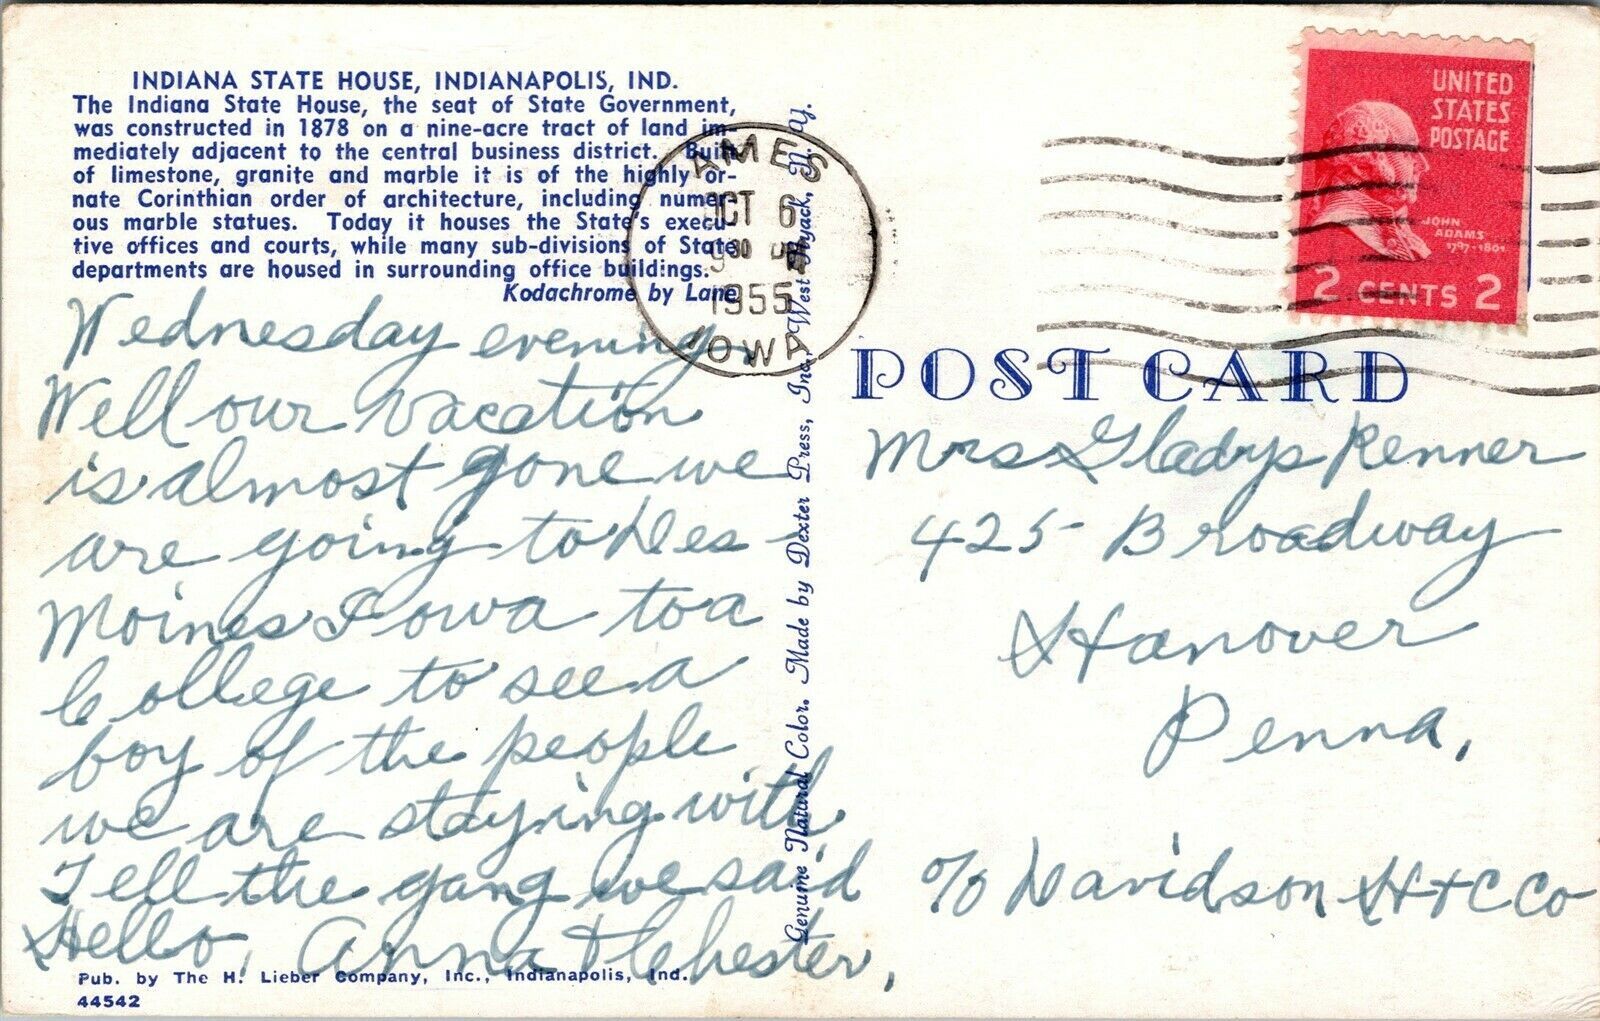 INDIANA STATE HOUSE, INDIANAPOLIS, IND.
The Indiana State House, the seat of State Government,
was constructed in 1878 on a nine-acre tract of land im-
mediately adjacent to the central business district. Built
of limestone, granite and marble it is of the highly or-
nate Corinthian order of architecture, including numer-
ous marble statues. Today it houses the State's execu-
tive offices and courts, while many sub-divisions of State
departments are housed in surrounding office buildings.
Kodachrome by Lane
Wednesday evening.
Well our vacation
is almost gone we
are going to Des-
Moines Iowa to a
College to see a
boy of the people
we are staying with
Tell the gang we said
Hello, Anna & Chester,
Pub. by The H. Lieber Company, Inc., Indianapolis, Ind.
44542
Genuine Natural Color. Made by Dexter Press, Inc., West Nyack, N. Y.
AMES
OCT 6
9 30 PM
1955
IOWA
UNITED
STATES
POSTAGE
JOHN
ADAMS
1797-1801
2 CENTS 2
POST CARD
Mrs Gladys Renner
425 Broadway
Hanover
Penna,
c/o Davidson H + C Co